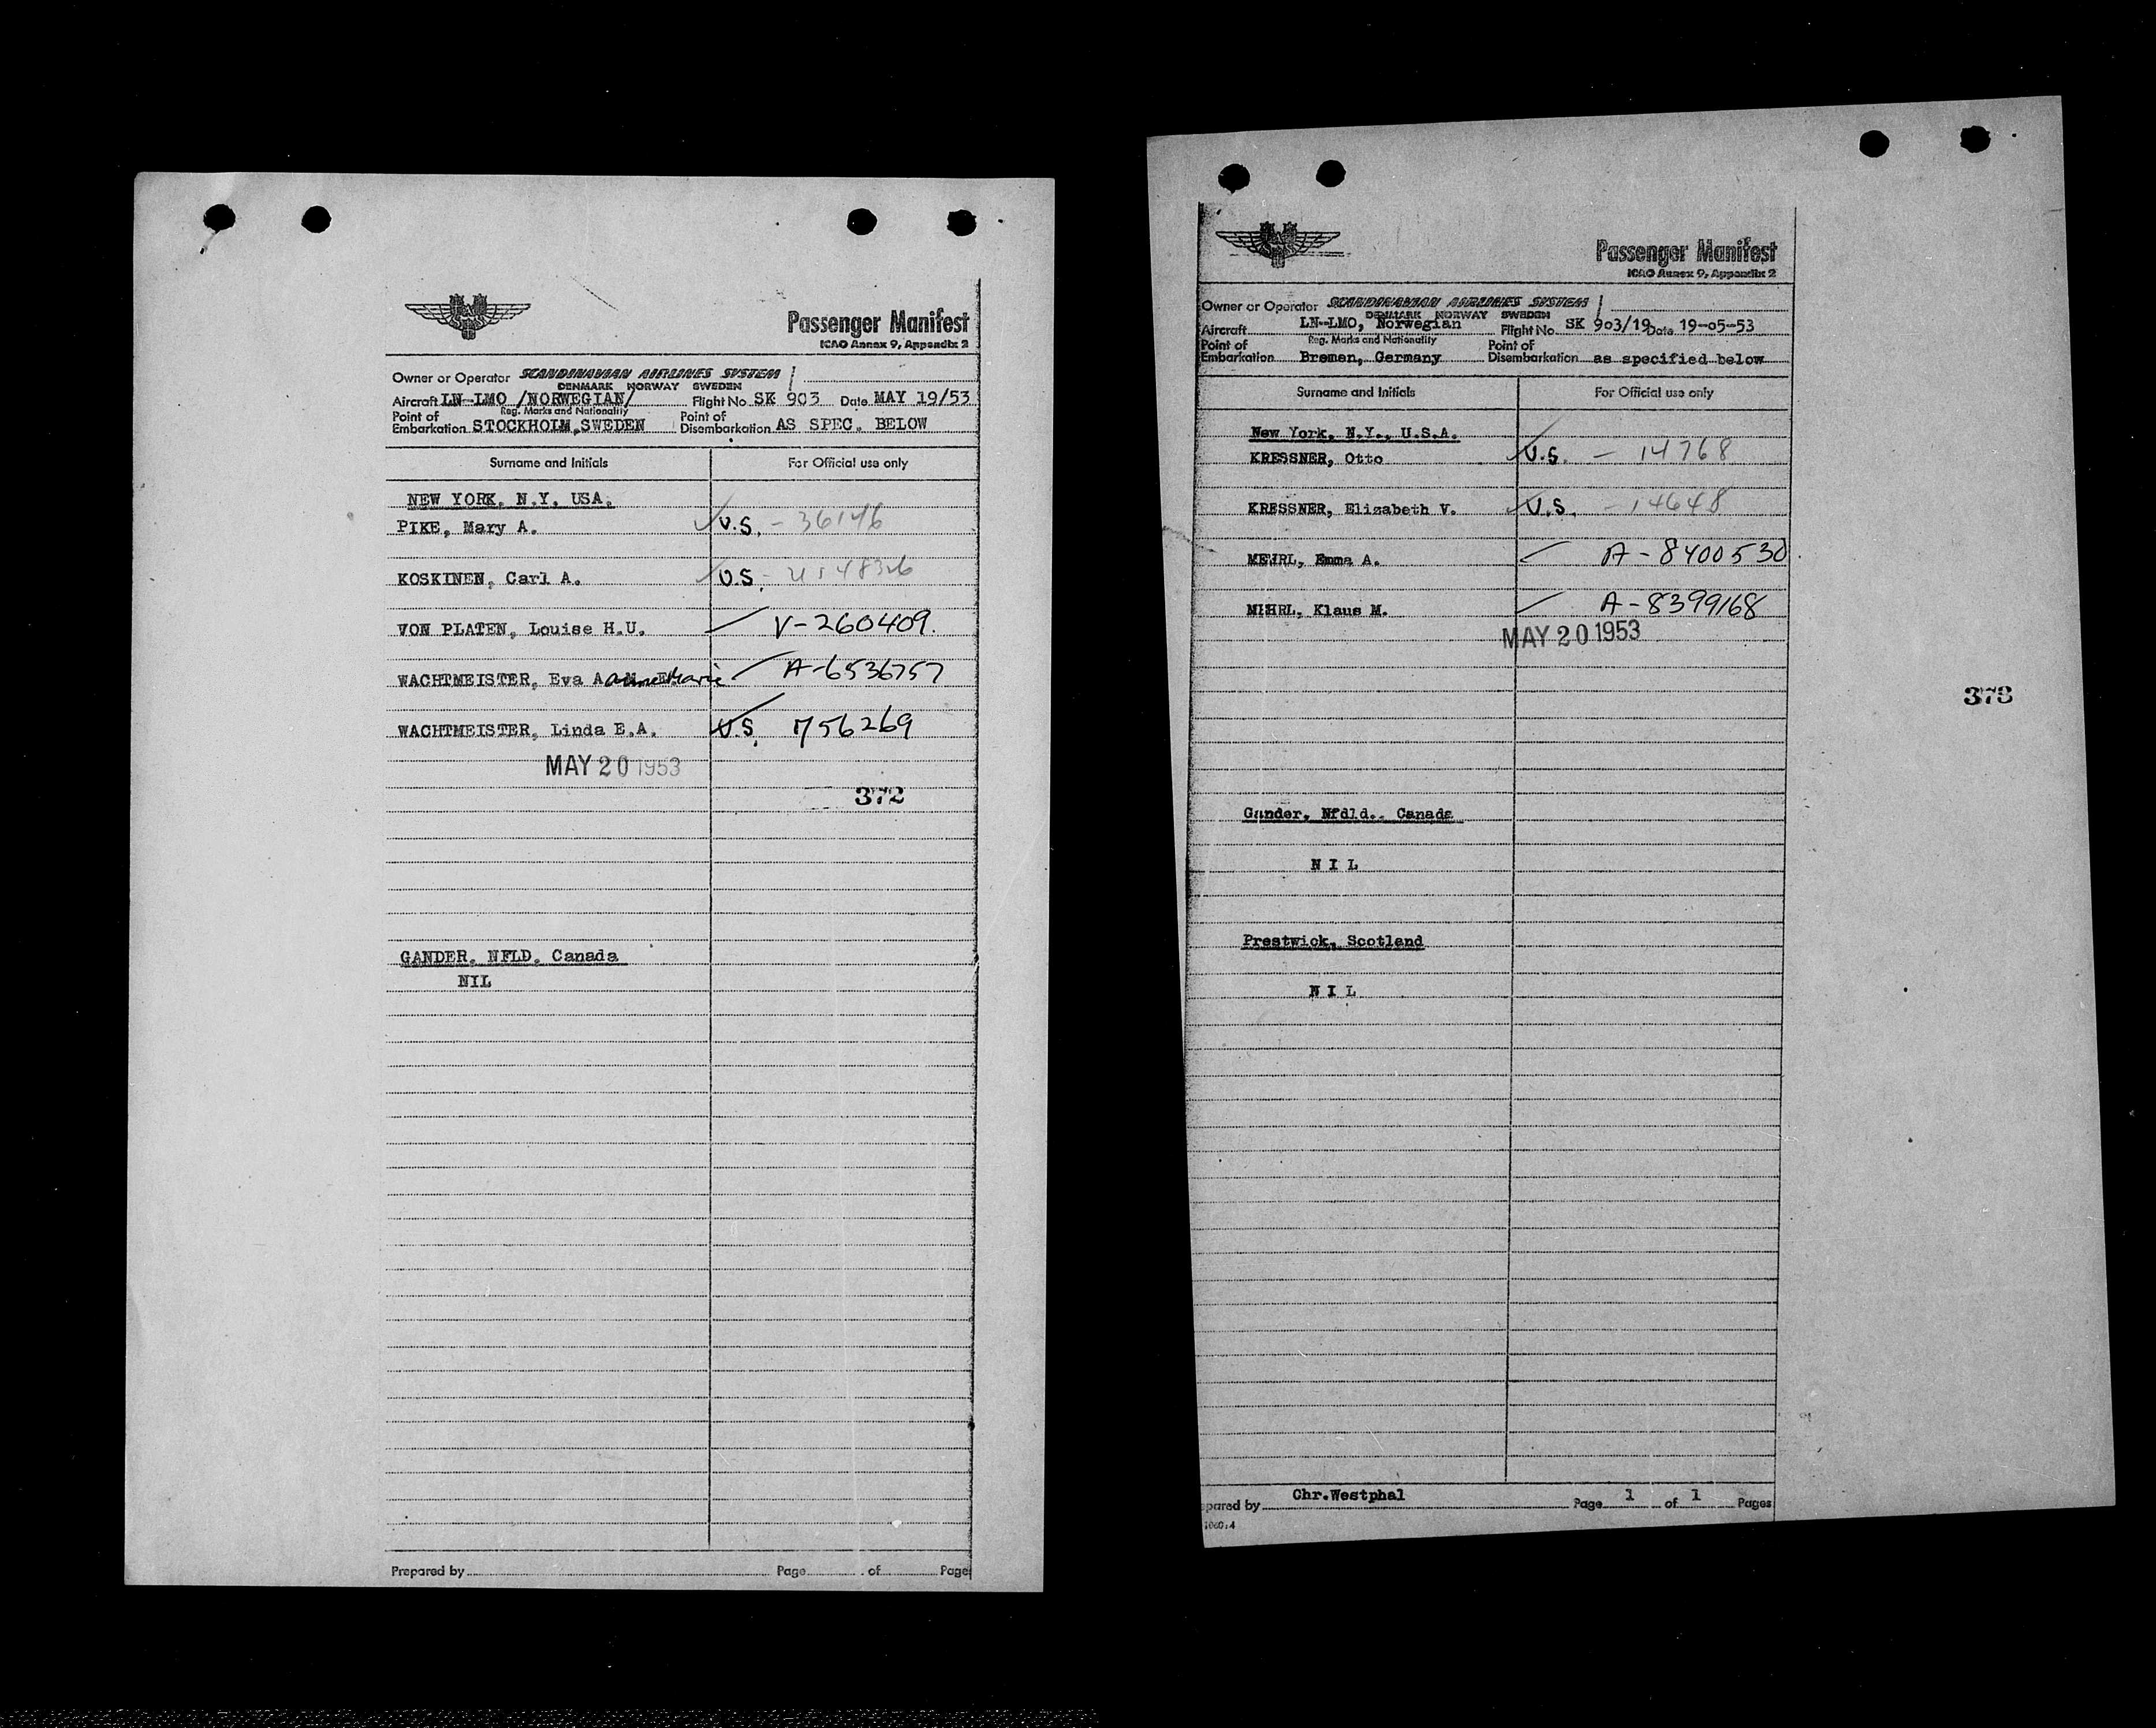 Passenger Manifest
ICAO Annex 9, Appendix 2
Owner or Operator SCANDINAVIAN AIRLINES SYSTEM
DENMARK NORWAY SWEDEN
Aircraft LN-LMO /NORWEGIAN/ Flight No SK 903 Date MAY 19/53
Reg. Marks and Nationality
Point of Embarkation STOCKHOLM, SWEDEN Point of Disembarkation AS SPEC. BELOW
Surname and Initials For Official use only
NEW YORK, N.Y, USA.
PIKE, Mary A. U.S. - 36146
KOSKINEN, Carl A. U.S.
VON PLATEN, Louise H.U. V-260409.
WACHTMEISTER, Eva A. A-6536757
WACHTMEISTER, Linda E.A. U.S. 756269
MAY 20 1953
372
GANDER, NFLD, Canada
NIL
Prepared by Page of Page
Passenger Manifest
ICAO Annex 9, Appendix 2
Owner or Operator SCANDINAVIAN AIRLINES SYSTEM
DENMARK NORWAY SWEDEN
Aircraft LN-LMO, Norwegian Flight No. SK 903/19 Date 19-05-53
Reg. Marks and Nationality
Point of Embarkation Bremen, Germany Point of Disembarkation as specified below
Surname and Initials For Official use only
New York, N.Y., U.S.A.
KRESSNER, Otto U.S. - 14768
KRESSNER, Elisabeth V. U.S. - 14648
Emma A. A-8400530
Klaus M. A-8399168
MAY 20 1953
373
Gander, Nfdld., Canada
N I L
Prestwick, Scotland
N I L
pared by Chr.Westphal Page 1 of 1 Pages